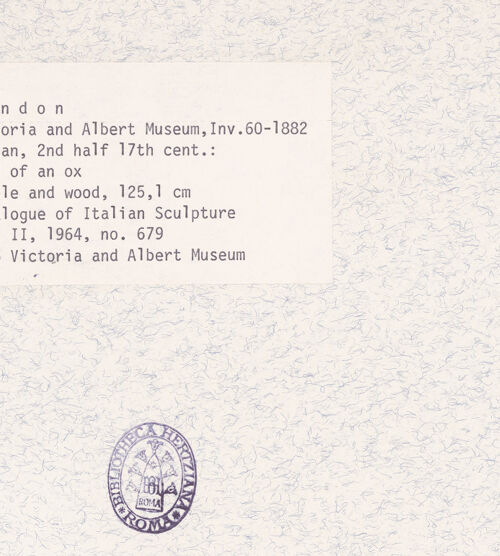 n d o n
oria and Albert Museum,Inv.60-1882
an, 2nd half 17th cent.:
of an ox
le and wood, 125,1 cm
logue of Italian Sculpture
II, 1964, no. 679
Victoria and Albert Museum
BIBLIOTHECA HERTZIANA
ROMA
ROMA